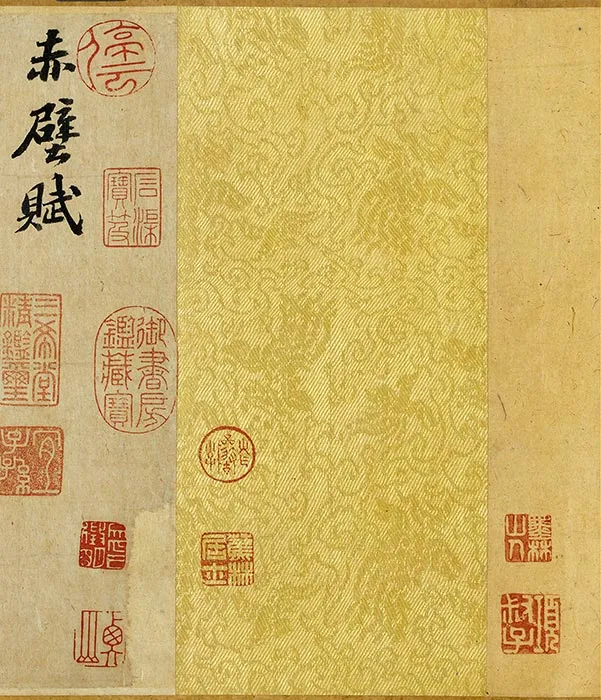 墨林山人
項叔子
蕉林居士
停雲
石渠寶笈
御書房鑑藏寶
赤壁賦
三希堂精鑑璽
宜子孫